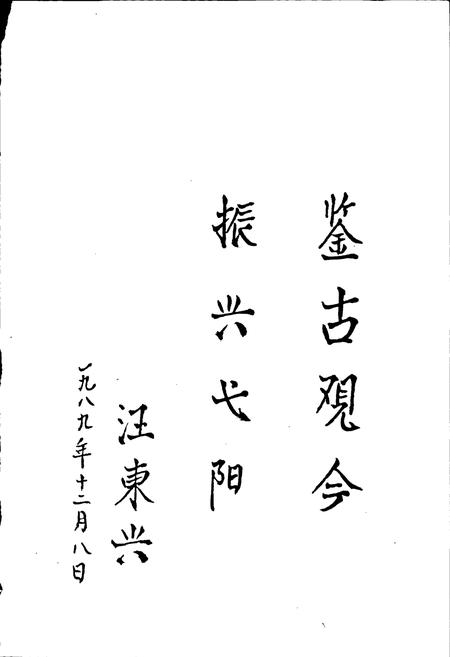 鉴古观今
振兴弋阳
汪東兴
一九八九年十二月八日